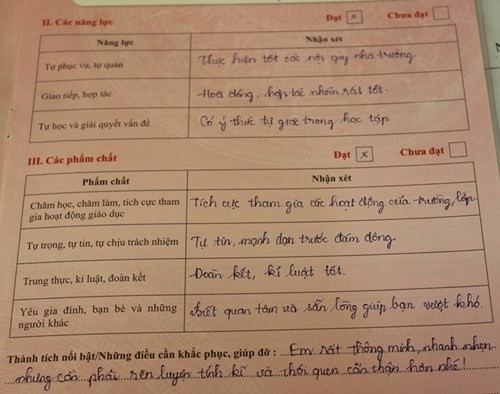 II. Các năng lực
Đạt x Chưa đạt
Năng lực Nhận xét
Tự phục vụ, tự quản Thực hiện tốt các nội quy nhà trường.
Giao tiếp, hợp tác Hoà đồng, hợp tác nhóm rất tốt.
Tự học và giải quyết vấn đề Có ý thức tự giác trong học tập
III. Các phẩm chất
Đạt x Chưa đạt
Phẩm chất Nhận xét
Chăm học, chăm làm, tích cực tham Tích cực tham gia các hoạt động của trường, lớp
gia hoạt động giáo dục
Tự trọng, tự tin, tự chịu trách nhiệm Tự tin, mạnh dạn trước đám đông
Trung thực, kỉ luật, đoàn kết Đoàn kết, kỉ luật tốt.
Yêu gia đình, bạn bè và những Biết quan tâm và sẵn lòng giúp bạn vượt khó.
người khác
Thành tích nổi bật/Những điều cần khắc phục, giúp đỡ : Em rất thông minh, nhanh nhẹn
nhưng cần phải rèn luyện tính kĩ và thói quen cẩn thận hơn nhé!